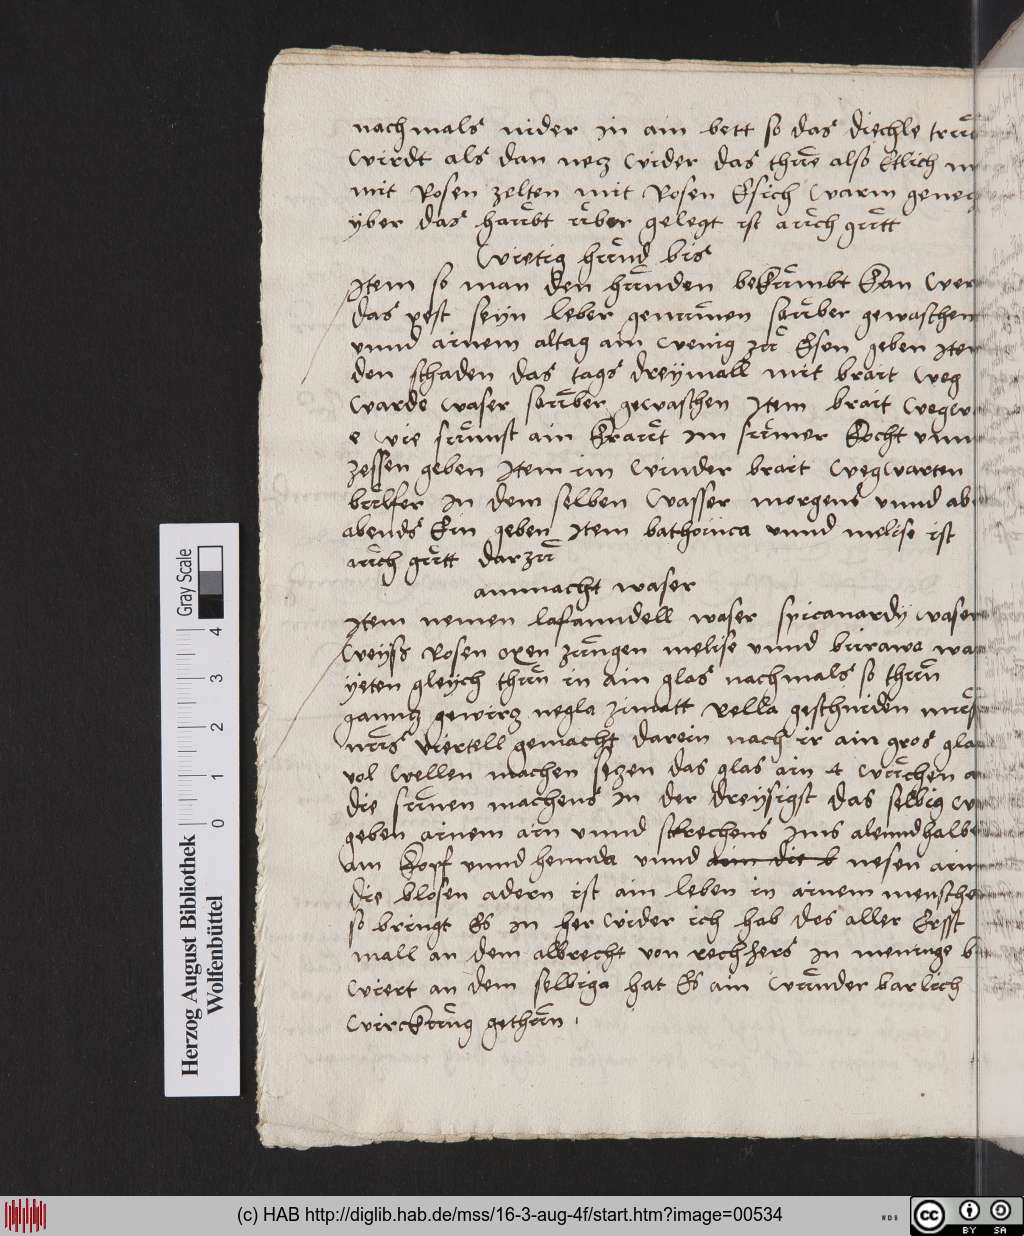 nachmals nider in ain bett so das diechle tru
wirdt als dan nez wider das thue also Etlich m
mit Rosen zelten mit Rosen Esich warm gene
yber das haubt uber gelegt ist auch gutt
wietig hund bis
Item so man den hunden bekumbt kan wer
das pest seyn leber genumen sauber gewaschen
unnd ainem altag ain wenig zu Esen geben Item
den schaden das tags dreymall mit brait weg
warde waser sauber gewaschen Item brait wegw
e wie sunst ain kraut im sumer kocht unn
zessen geben Item im winder brait wegwarten
bulfer in dem selben wasser morgens unnd ab
abends Ein geben Item bathonica unnd melise ist
auch gutt darzu
anmacht waser
Item nemen lafanndell waser spicanardy waser
weyss Rosen oxen zungen melise unnd burawa wa
yeten gleych thun in ain glas nachmals so thun
ganntz gewirz negla zimatt Rella geschniden mus
nus viertell gemacht darein nach ir ain gros gla
vol wellen machen sezen das glas ain 4 wuchen a
die sunen machens in der dreysigst das selbig w
geben ainem ain unnd streichens Ims alenndhalbe
am kopf unnd hennda unnd ain die b nesen ain
die blosen adern ist ain leben in ainem mensche
so bringt Es in her wider ich hab des aller Erst
mall an dem albrecht von rechhers in meninge b
wiert an dem selbiga hat Es ain wunder barlich
wirckung gethun
Herzog August Bibliothek
Wolfenbüttel
0 1 2 3 4
Gray Scale
(c) HAB http://diglib.hab.de/mss/16-3-aug-4f/start.htm?image=00534
WDB
cc BY SA